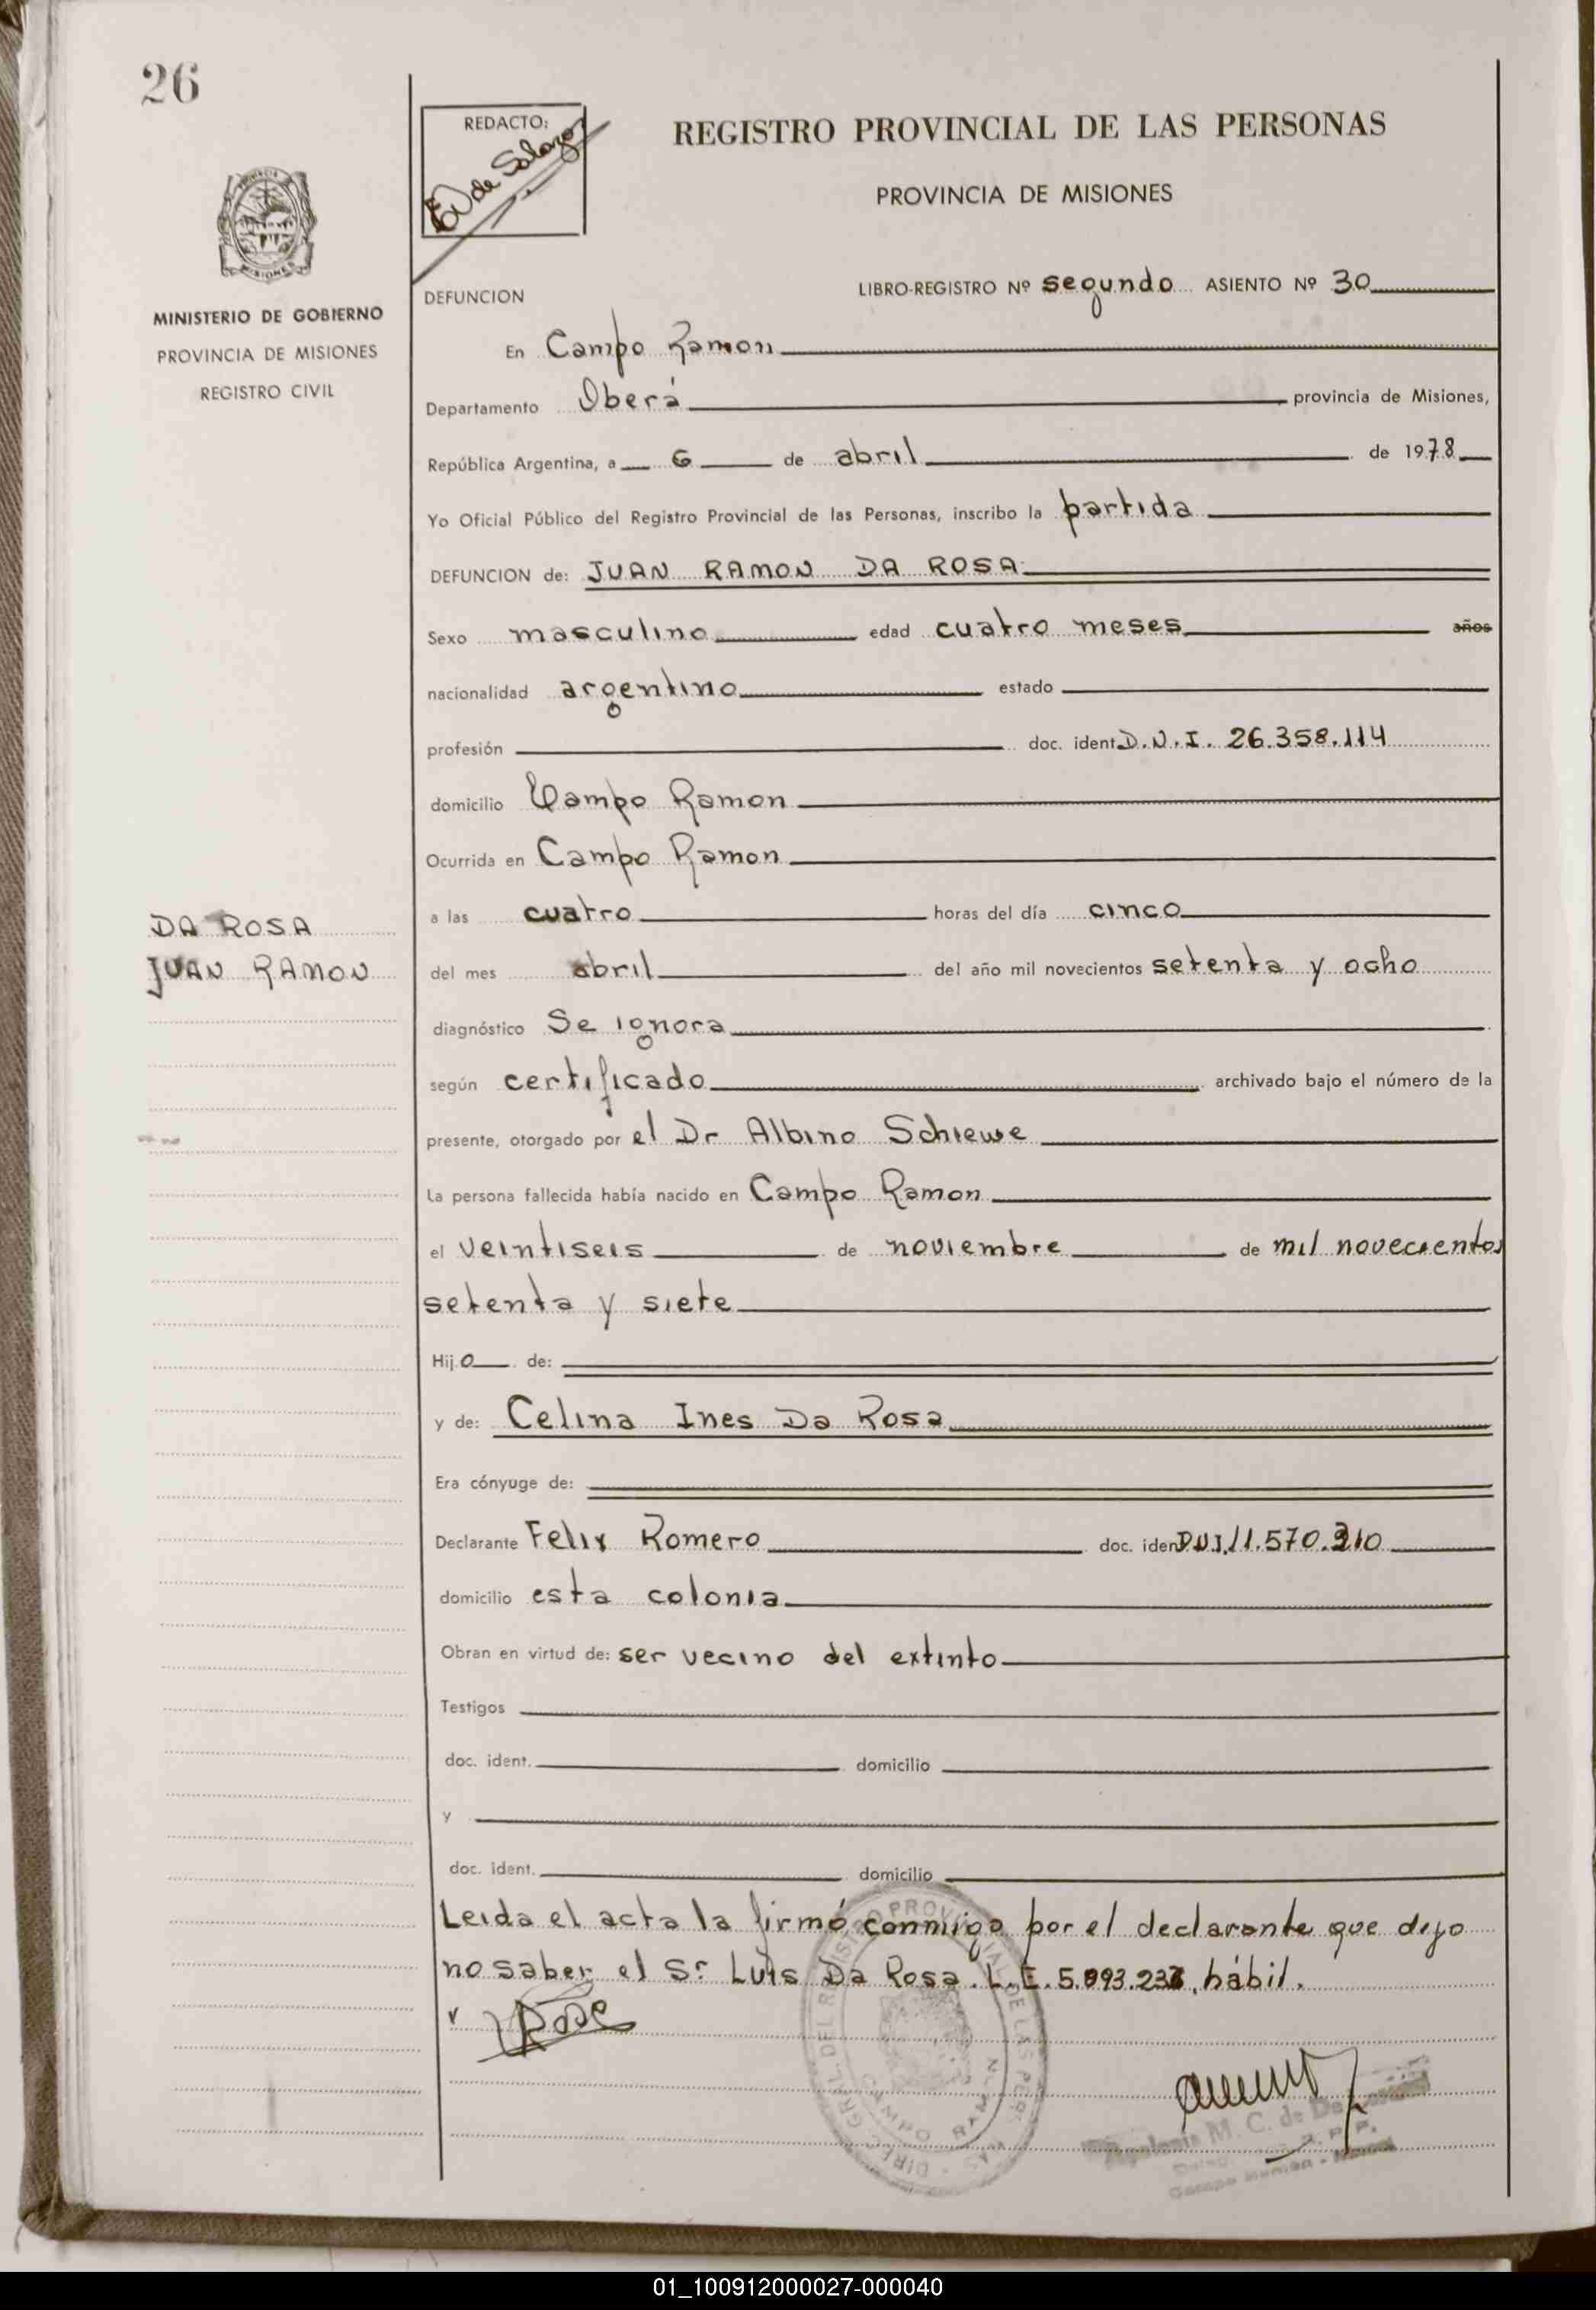 26
REDACTO:
REGISTRO PROVINCIAL DE LAS PERSONAS
PROVINCIA DE MISIONES
MISIONES
MINISTERIO DE GOBIERNO
PROVINCIA DE MISIONES
REGISTRO CIVIL
DEFUNCION
LIBRO-REGISTRO Nº segundo ASIENTO Nº 30
En Campo Ramon
Departamento Oberá provincia de Misiones,
República Argentina, a 6 de abril de 1978
Yo Oficial Público del Registro Provincial de las Personas, inscribo la partida
DEFUNCION de: JUAN RAMON DA ROSA
Sexo masculino edad cuatro meses años
nacionalidad argentino estado
profesión doc. ident. D.N.I. 26.358.114
domicilio Campo Ramon
Ocurrida en Campo Ramon
DA ROSA
JUAN RAMON
a las cuatro horas del día cinco
del mes abril del año mil novecientos setenta y ocho
diagnóstico Se ignora
según certificado archivado bajo el número de la
presente, otorgado por el Dr Albino Schiewe
La persona fallecida había nacido en Campo Ramon
el veintiseis de noviembre de mil novecientos
setenta y siete
Hijo de:
y de: Celina Ines Da Rosa
Era cónyuge de:
Declarante Felix Romero doc. iden D.N.I. 11.570.210
domicilio esta colonia
Obran en virtud de: ser vecino del extinto
Testigos
doc. ident. domicilio
y
doc. ident. domicilio
Leida el acta la firmó conmigo por el declarante que dijo
no saber, el Sr Luis Da Rosa. L.E. hábil.
CAMPO RAMON
01_100912000027-000040